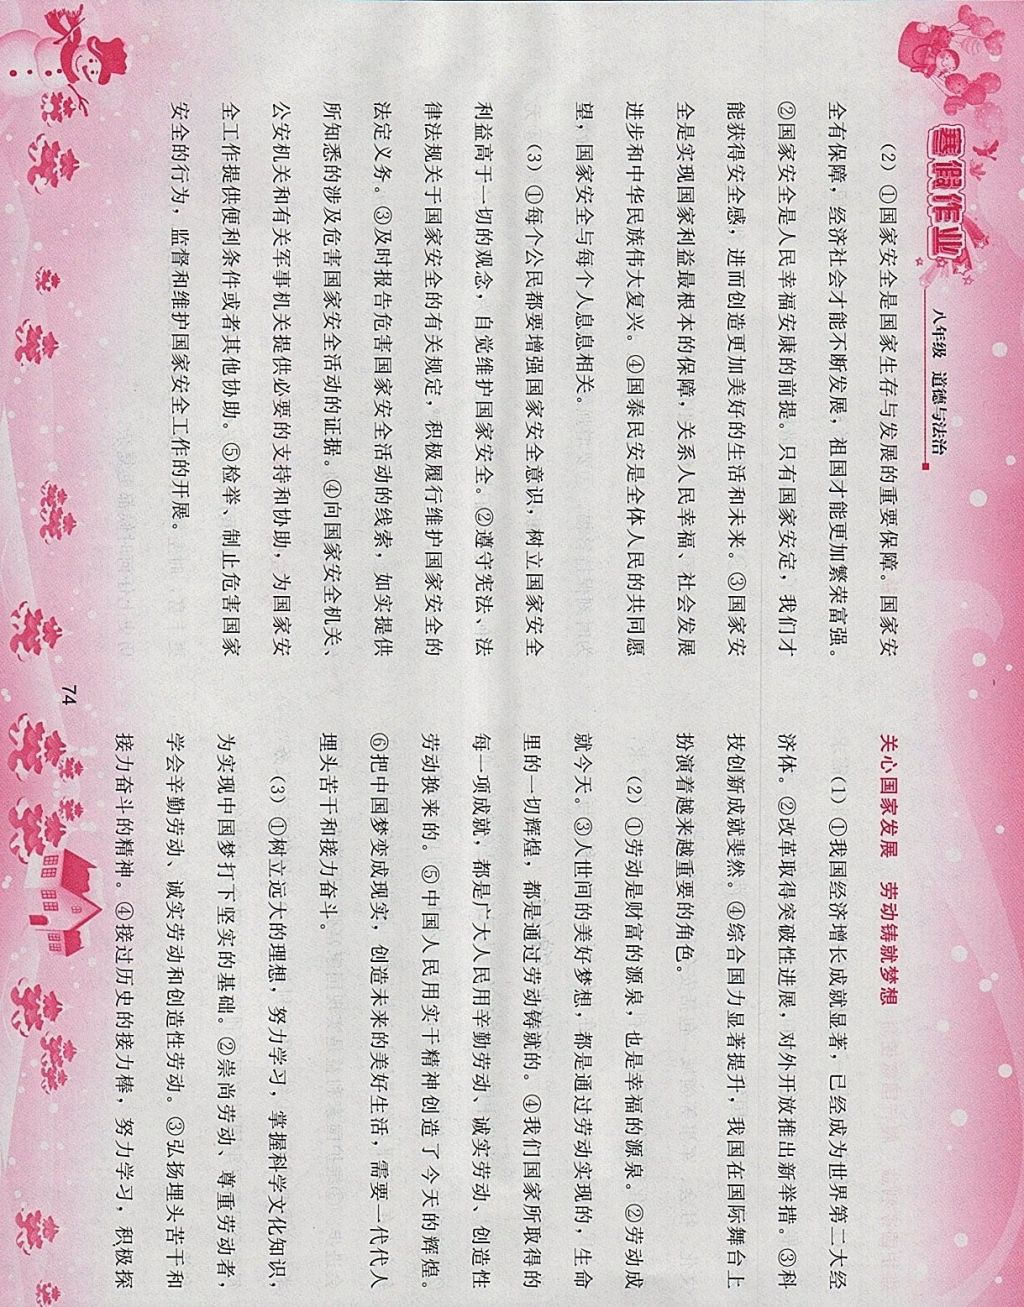 寒假作业
八年级 道德与法治
(2)①国家安全是国家生存与发展的重要保障。国家安
全有保障，经济社会才能不断发展，祖国才能更加繁荣富强。
②国家安全是人民幸福安康的前提。只有国家安定，我们才
能获得安全感，进而创造更加美好的生活和未来。③国家安
全是实现国家利益最根本的保障，关系人民幸福、社会发展
进步和中华民族伟大复兴。④国泰民安是全体人民的共同愿
望，国家安全与每个人息息相关。
(3)①每个公民都要增强国家安全意识，树立国家安全
利益高于一切的观念，自觉维护国家安全。②遵守宪法、法
律法规关于国家安全的有关规定，积极履行维护国家安全的
法定义务。③及时报告危害国家安全活动的线索，如实提供
所知悉的涉及危害国家安全活动的证据。④向国家安全机关、
公安机关和有关军事机关提供必要的支持和协助，为国家安
全工作提供便利条件或者其他协助。⑤检举、制止危害国家
安全的行为，监督和维护国家安全工作的开展。
关心国家发展 劳动铸就梦想
(1)①我国经济增长成就显著，已经成为世界第二大经
济体。②改革取得突破性进展，对外开放推出新举措。③科
技创新成就斐然。④综合国力显著提升，我国在国际舞台上
扮演着越来越重要的角色。
(2)①劳动是财富的源泉，也是幸福的源泉。②劳动成
就今天。③人世间的美好梦想，都是通过劳动实现的，生命
里的一切辉煌，都是通过劳动铸就的。④我们国家所取得的
每一项成就，都是广大人民用辛勤劳动、诚实劳动、创造性
劳动换来的。⑤中国人民用实干精神创造了今天的辉煌。
⑥把中国梦变成现实，创造未来的美好生活，需要一代代人
埋头苦干和接力奋斗。
(3)①树立远大的理想，努力学习，掌握科学文化知识，
为实现中国梦打下坚实的基础。②崇尚劳动、尊重劳动者，
学会辛勤劳动、诚实劳动和创造性劳动。③弘扬埋头苦干和
接力奋斗的精神。④接过历史的接力棒，努力学习，积极探
74